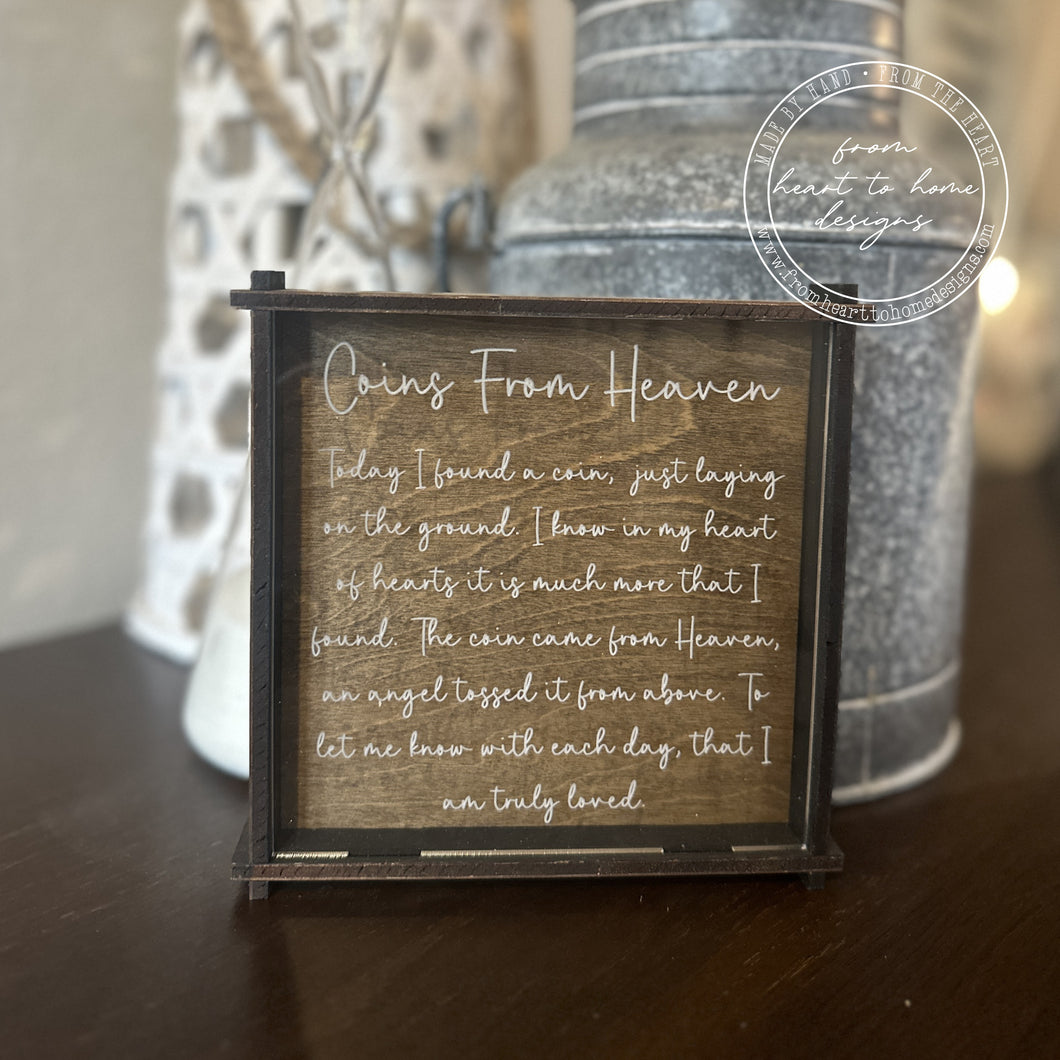 MADE BY HAND • FROM THE HEART
from
heart to home
designs
www.fromhearttohomedesigns.com
Coins From Heaven
Today I found a coin, just laying
on the ground. I know in my heart
of hearts it is much more that I
found. The coin came from Heaven,
an angel tossed it from above. To
let me know with each day, that I
am truly loved.